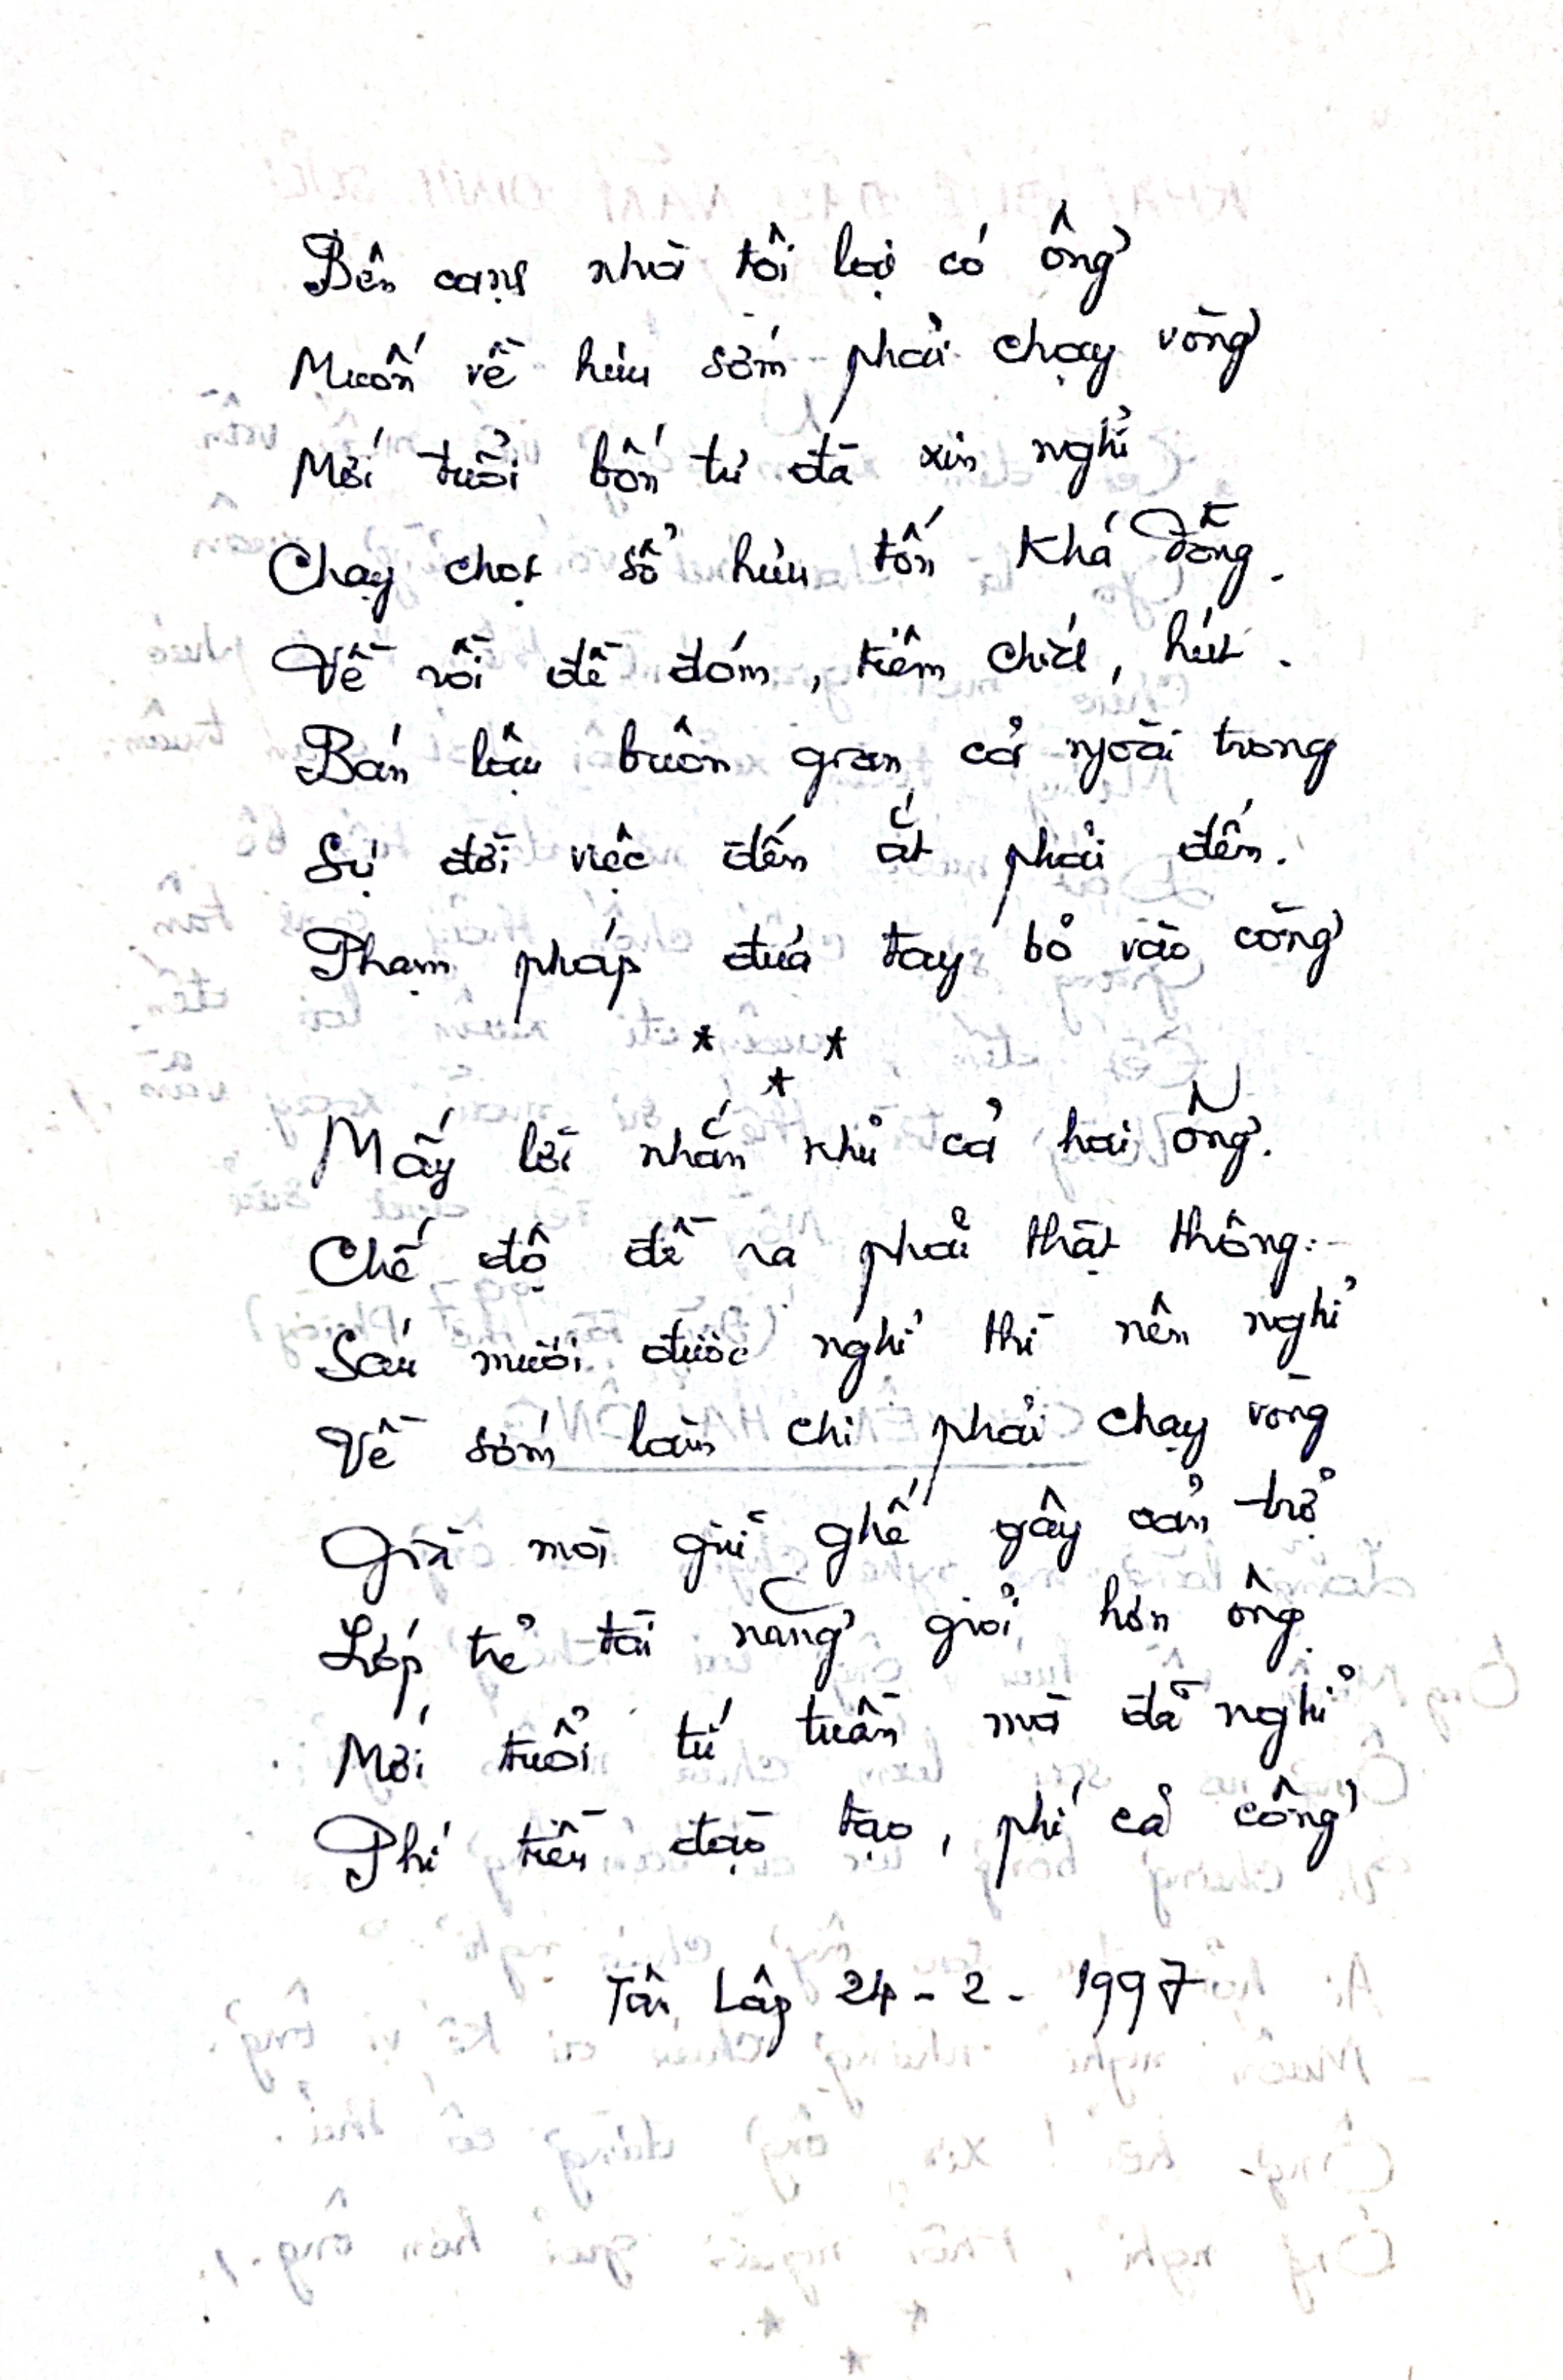 Bên cạnh nhà tôi lại có ông
Muốn về hưu sớm phải chạy vòng
Mới tuổi bốn tư đã xin nghỉ
Chạy chọt sổ hưu tốn khá đồng.
Về rồi đề đóm, tiêm chích, hút.
Bán lậu buôn gian cả ngoài trong
Sự đời việc đến ắt phải đến.
Phạm pháp đưa tay bỏ vào còng
* *
*
Mấy lời nhắn khủ cả hai ông.
Chế độ đề ra phải thật thông:
Sáu mươi được nghỉ thì nên nghỉ
Về sớm làm chi phải chạy vòng
Già mà giữ ghế gây cản trở
Lớp trẻ tài năng giỏi hơn ông
Mới tuổi tứ tuần mà đã nghỉ
Phí tiền đào tạo, phí cả công
Tân Lập 24-2-1997